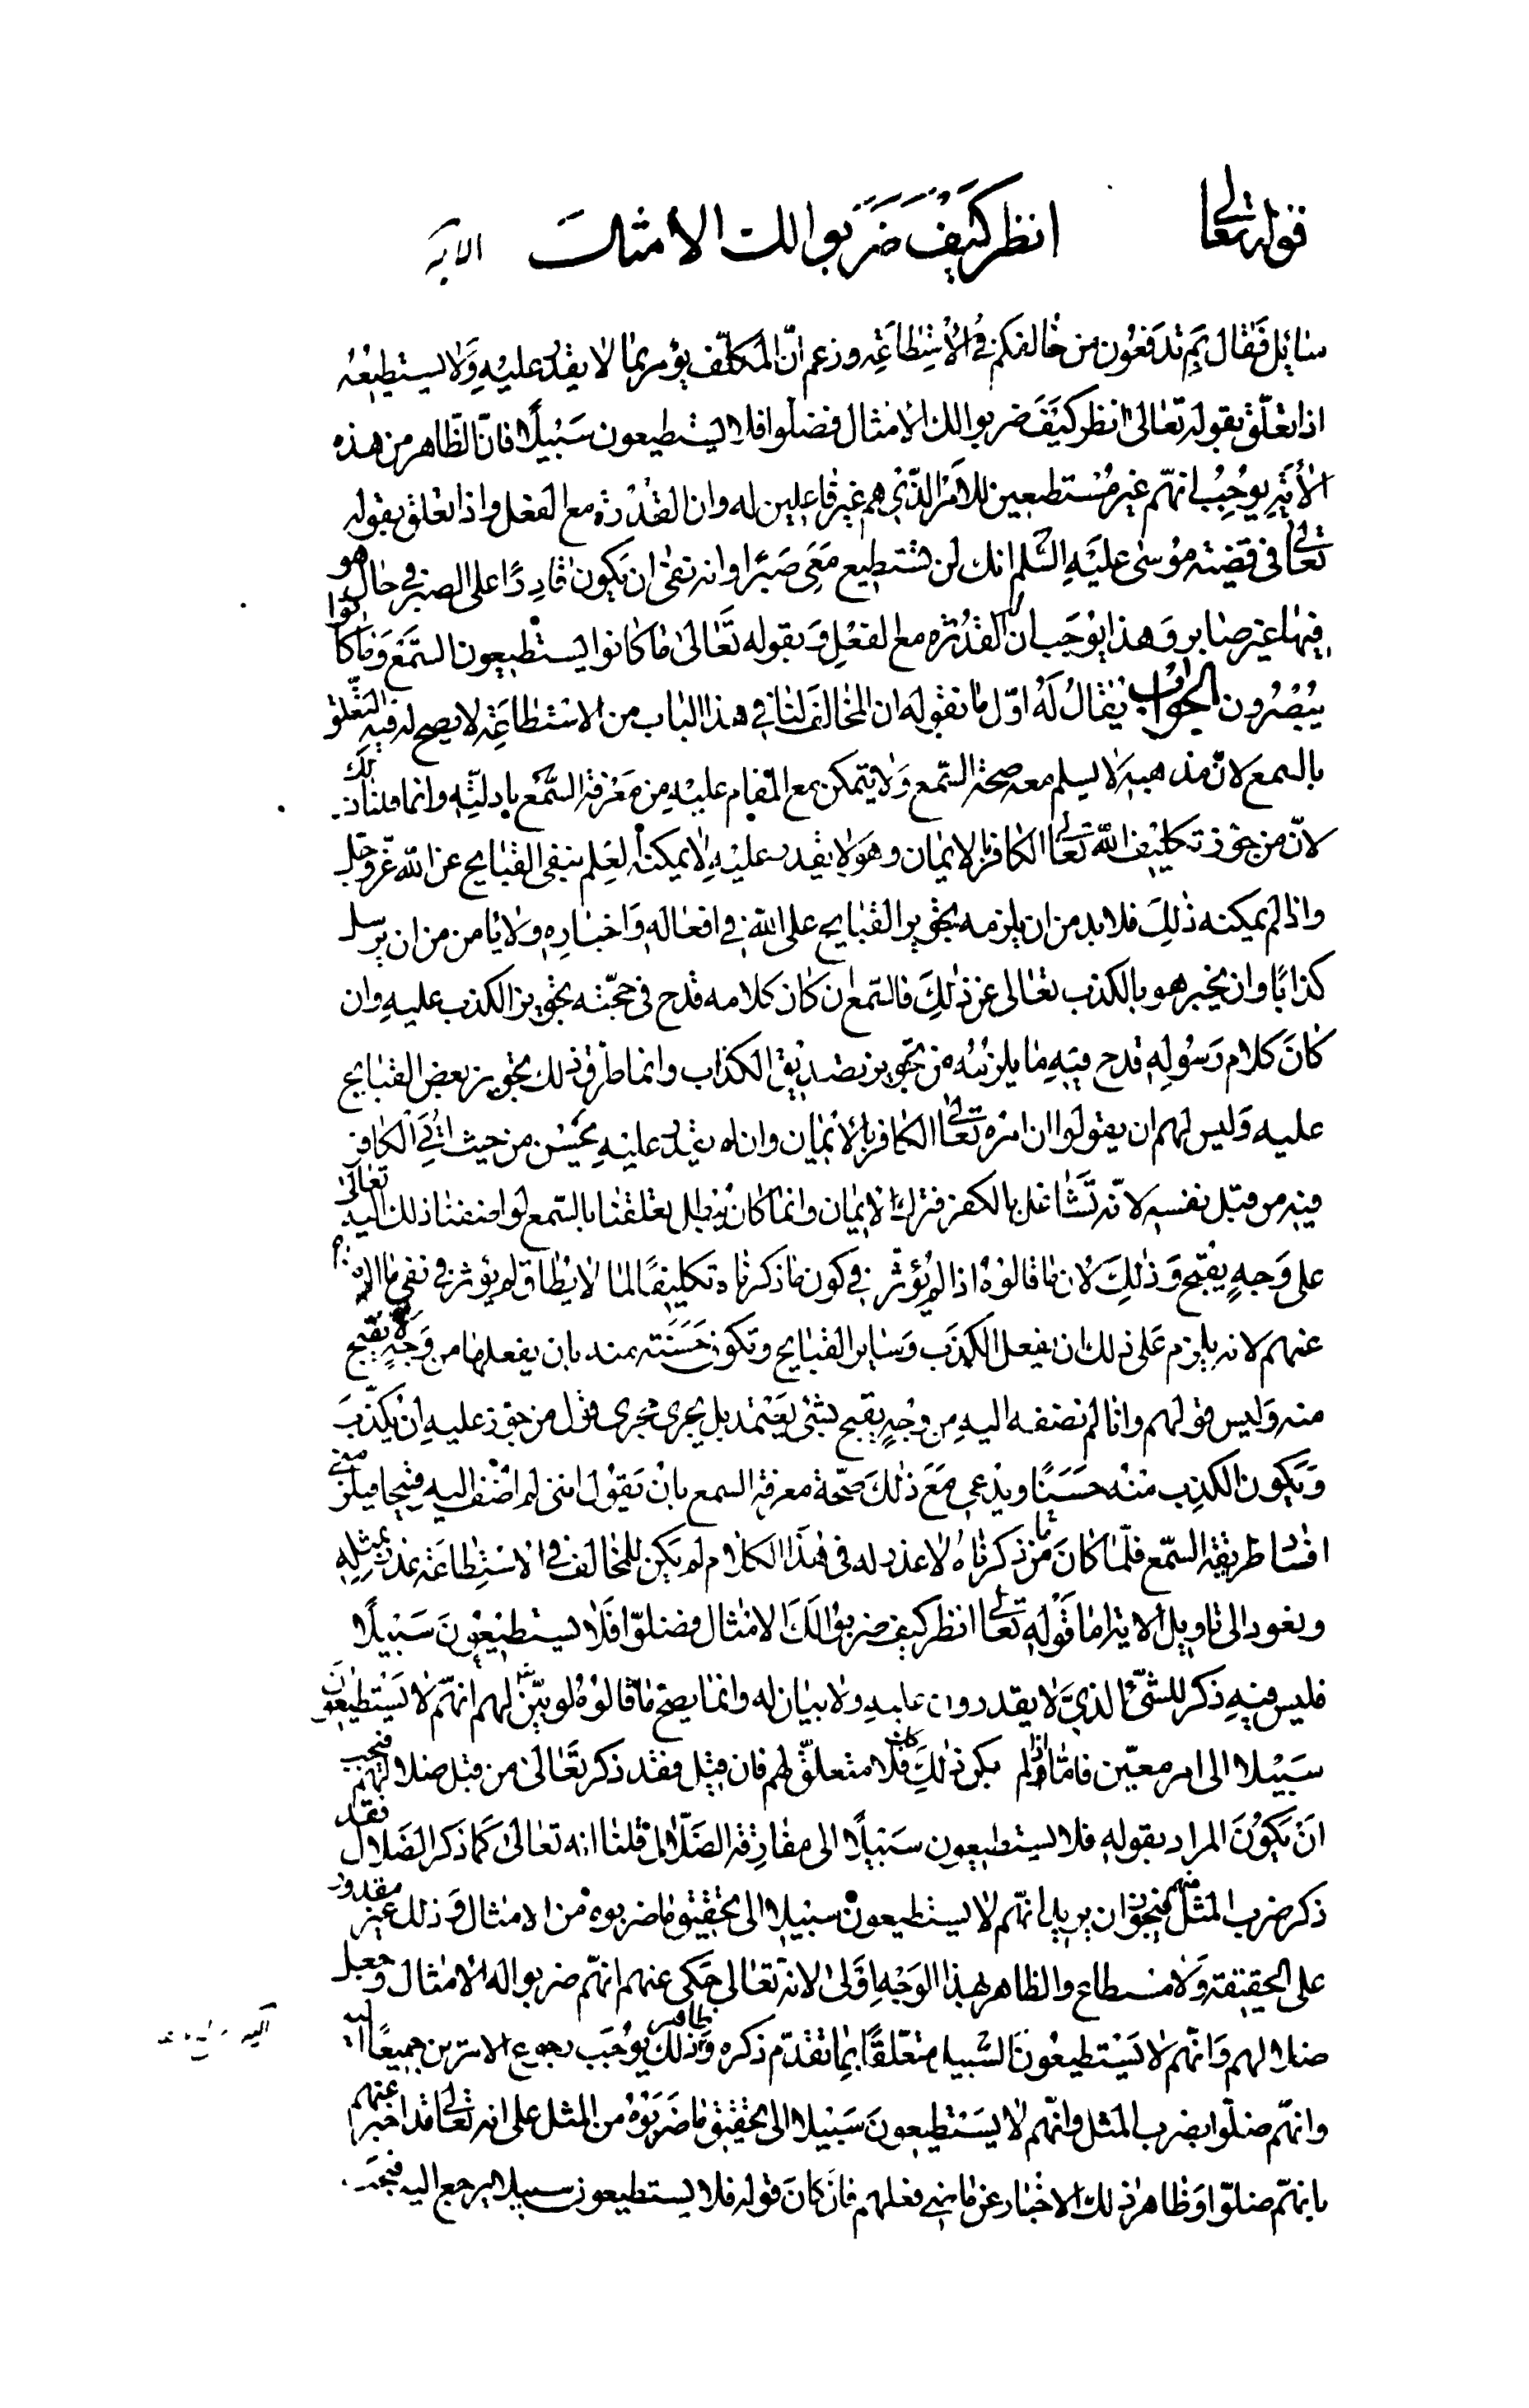 قوله تعالى انظر كَيْفَ ضَرَبوا لك الامثالَ الآية
سائل فقال بم تدفعون من خالفكم في الاستطاعة وزعم انّ المكلّف يؤمر بما لا يقدر عليه ولا يستطيعه
اذا تعلّق بقوله تعالى انظر كيفَ ضربوا لك الامثال فضلوا فلا يستطيعون سَبيلًا فانّ الظاهر من هذه
الأية يوجب انهم غير مستطيعين للامر الذي هم غير فاعلين له وان القدرة مع الفعل واذا تعلق بقوله
تعالى في قصة موسى عليه السلم انك لن تستطيع معي صبرا وانه نفى ان يكون قادرًا على الصبر في حال هو
فيها غير صابر وهذا يوجب ان القدرة مع الفعل وبقوله تعالى ما كانوا يستطيعون السمع وما كانوا
يبصرون الجواب يقال له اوّل ما نقوله ان المخالف لنا في هذا الباب من الاستطاعة لا يصح له فيه التعلّق
بالسمع لانّ مذهبه لا يسلم معه صحة السّمع ولا يتمكن مع المقام عليه من معرفة السّمع بادلّته وانما قلنا ذلك
لانّ من جوّز تكليف الله تعالى الكافر الايمان وهو لا يقدر عليه لا يمكنه العلم بنفي القبايح عن الله عزّ وجلّ
واذا لم يمكنه ذلك فلا بد من ان يلزمه تجويز القبايح على الله في افعاله واخباره ولا يامن من ان يرسل
كذابًا وان يخبر هو بالكذب تعالى عن ذلك فالسّمع ان كان كلامه قدح في حجّته تجويز الكذب عليه وان
كان كلام رسوله قدح فيه ما يلزمه من تجويز تصديق الكذاب وانما طرق ذلك تجويز بعض القبايح
عليه وليس لهم ان يقولوا ان امره تعالى الكافر بالايمان وان لم يقدر عليه يحسن من حيث اتي الكافر
فيه من قبل نفسه لانّه تشاغل بالكفر فترك الايمان وانما كان يبطل تعلقنا بالسّمع لو اضفنا ذلك اليه تعالى
على وجهٍ يقبح وذلك لان ما قالوه اذا لم يؤثّر في كون ما ذكرناه تكليفًا لما لا يطاق لم يؤثر في نفي ما الزمناه
عنهم لانه يلزم على ذلك ان يفعل الكذب وساير القبايح وتكون حسنة منه بان يفعلها من وجهٍ لا يقبح
منه وليس قولهم وانا لم نضفه اليه من وجهٍ يقبح بشئ يعتمد بل يجري مجرى قول من جوّز عليه ان يكذّب
ويكون الكذب منه حسنًا ويدعي مع ذلك صحّة معرفة السمع بان يقول انني لم اضف اليه قبيحا فيلزمني
افساد طريقة السّمع فلمّا كان من ذكرناه لا عذر له في هذا الكلام لم يكن للمخالف في الاستطاعة عذر بمثله
ونعود الى تاويل الاية اما قوله تعالى انظر كيف ضربوا لك الامثال فضلوّا فلا يستطيعون سبيلًا
فليس فيه ذكر للشئ الذي لا يقدرون عليه ولا بيان له وانما يصح ما قالوه لو بيّن لهم انهّم لا يستطيعون
سبيلا الى امر معيّن فامّا اذا لم يكن ذلك كذلك فلا متعلّق لهم فان قيل فقد ذكر تعالى من قبل ضلالهم فيجب
ان يكون المراد بقوله فلا يستطيعون سبيلًا الى مفارقة الضّلال قلنا انه تعالى كما ذكر الضلال فقد
ذكر ضرب المثل منهم فيجوز ان يريد انهّم لا يستطيعون سبيلا الى تحقيق ما ضربوه من الامثال وذلك غير مقدور
على الحقيقة ولا مستطاع والظاهر بهذا الوجه اولى لانه تعالى حكى عنهم انهّم ضربوا له الامثال وجعل
ضلالهم وانّهم لا يستطيعون السّبيل متعلّقًا بما تقدّم ذكره وظاهر ذلك يوجب رجوع الامرين جميعًا اليه
وانهّم ضلّوا بضرب المثل وانّهم لا يستطيعون سبيلا الى تحقيق ما ضربوه من المثل على انه تعالى قد اخبر عنهم
بانهّم ضلوّا وظاهر ذلك الاخبار عن ماضي فعلهم فان كان قوله فلا يستطيعون سبيلا يرجع اليه فيجب